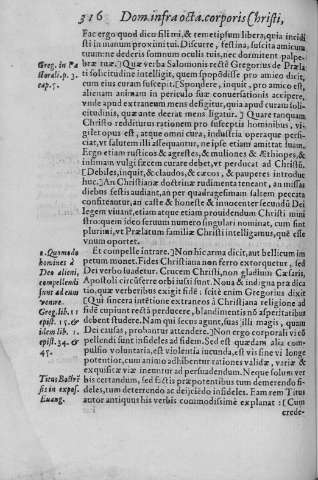 316 Dom. infra octa. corporis Christi,
Fac ergo quod dico fili mi, & temetipsum libera, quia incidi
sti in manum proximi tui. Discurre, festina, suscita amicum
tuum: ne dederis somnum oculis tuis, nec dormitent palpe-
Greg. in Pa
storali. p. 3.
cap. 5.
bræ tuæ.] Quæ verba Salomonis rectè Gregorius de Præla
ti solicitudine intelligit, quem spopõdisse pro amico dicit,
cum eius curam suscipit. [Spondere, inquit, pro amico est,
alienam animam in periculo suæ conuersationis accipere,
vnde apud extraneum mens defigitur, quia apud curam soli-
citudinis, quæ ante deerat mens ligatur.] Quare tanquam
Christo redditurus rationem pro susceptis hominibus, vi-
gilet opus est, atque omni cura, industria operaque perfi-
ciat, vt salutem illi assequantur, ne ipse etiam amittat suam.
Ergo etiam rusticos & agrestes, & muliones & Æthiopes, &
infimam vulgi fæcem curare debet, vt perducat ad Christũ.
[Debiles, inquit, & claudos, & cæcos, & pauperes introduc
huc.] An Christianæ doctrinæ rudimenta teneant, an missas
diebus festis audiant, an per quadragesimam saltem peccata
confiteantur, an castè & honestè & innocenter secundũ Dei
legem viuant, etiam atque etiam prouidendum Christi mini
stro: quem ideo seruum numero singulari nominat, cum sint
plurimi, vt Prælatum familiæ Christi intelligamus, quẽ esse
vnum oportet.
2. Quomodo
homines à
Deo alieni,
compellendi
sunt ad eum
venire.
Greg. lib. 11
epist. 15. &
idem lib. 1.
epist. 34. &
45.
Et compelle intrare.] Non hic arma dicit, aut bellicum im
petum monet. Fides Christiana non ferro extorquetur, sed
Dei verbo suadetur. Crucem Christi, non gladium Cæsaris,
Apostoli circũferre orbi iussi sunt. Noua & indigna prædica
tio, quæ verberibus exigit fidẽ: scitè enim Gregorius dixit
[Qui sincera intẽtione extraneos à Christiana religione ad
fidẽ cupiunt rectã perducere, blandimentis nõ asperitatibus
debent studere. Nam qui secus agunt, suas illi magis, quam
Dei causas, probantur attendere.] Non ergo corporali vi cõ
pellendi sunt infideles ad fidem. Sed est quædam alia com-
pulsio voluntaria, est violentia iucunda, est vis sine vi longe
potentior, cum animo adhibentur rationes validæ, variæ &
exquisitæ viæ ineuntur ad persuadendum. Neque solum ver
Titus Bostrẽ
sis in expos.
Euang.
bis certandum, sed factis præpotentibus tum demerendo fi-
deles, tum deterrendo ac deijciẽdo infideles. Eam rem Titus
autor antiquus his verbis commodissimè explanat: [Cum
crede-